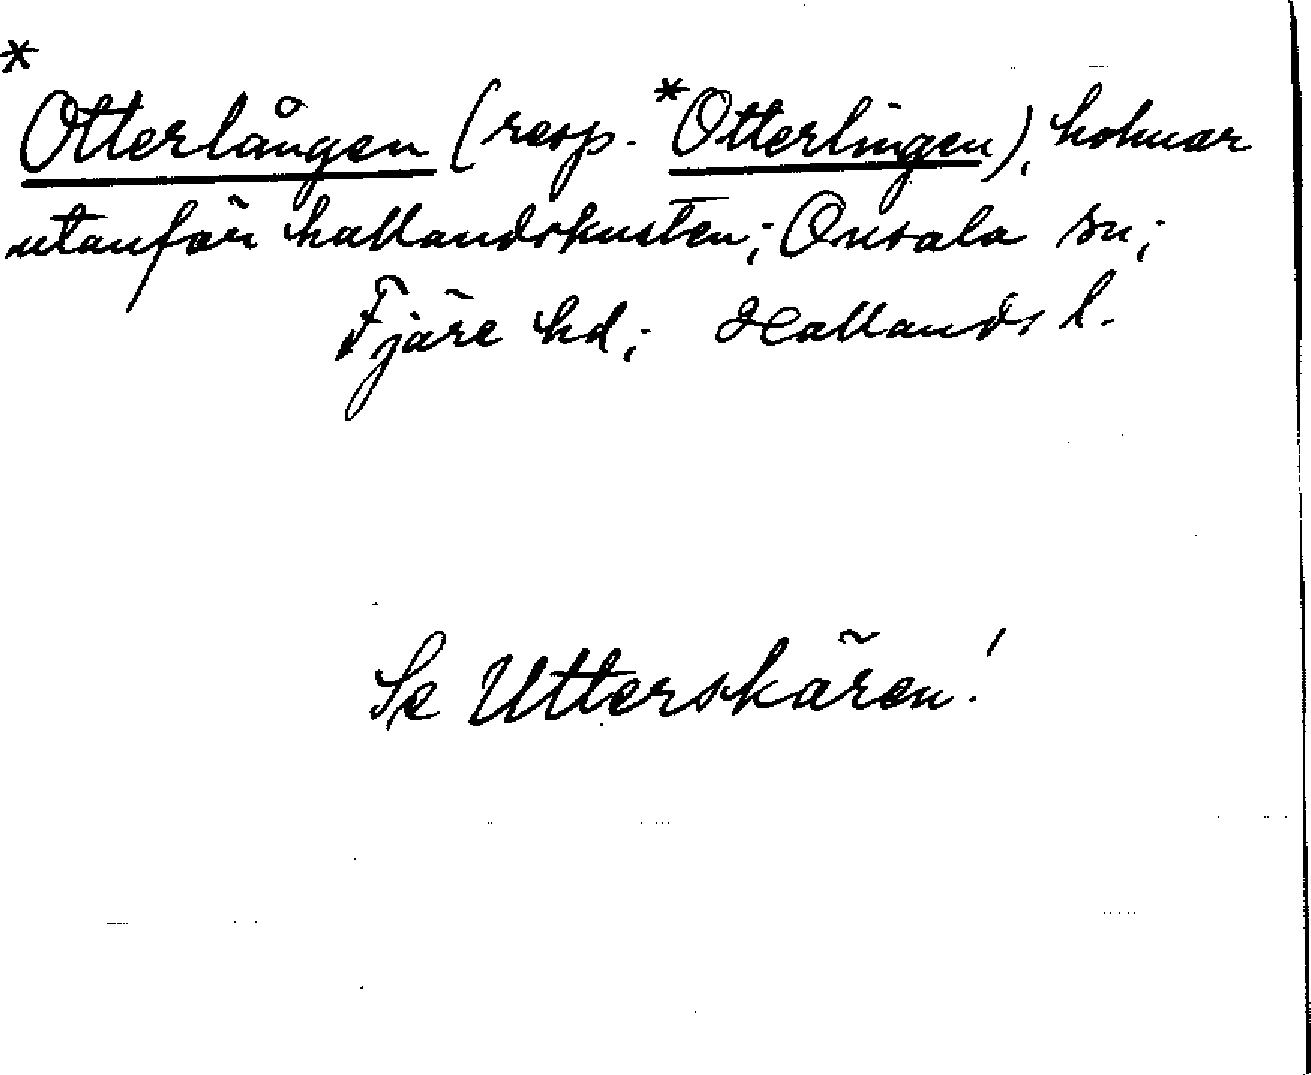 *
Otterlången (resp. *Otterlingen), holmar
utanför hallandskusten; Onsala sn;
Fjäre hd; Hallands l.
Se Utterskären!